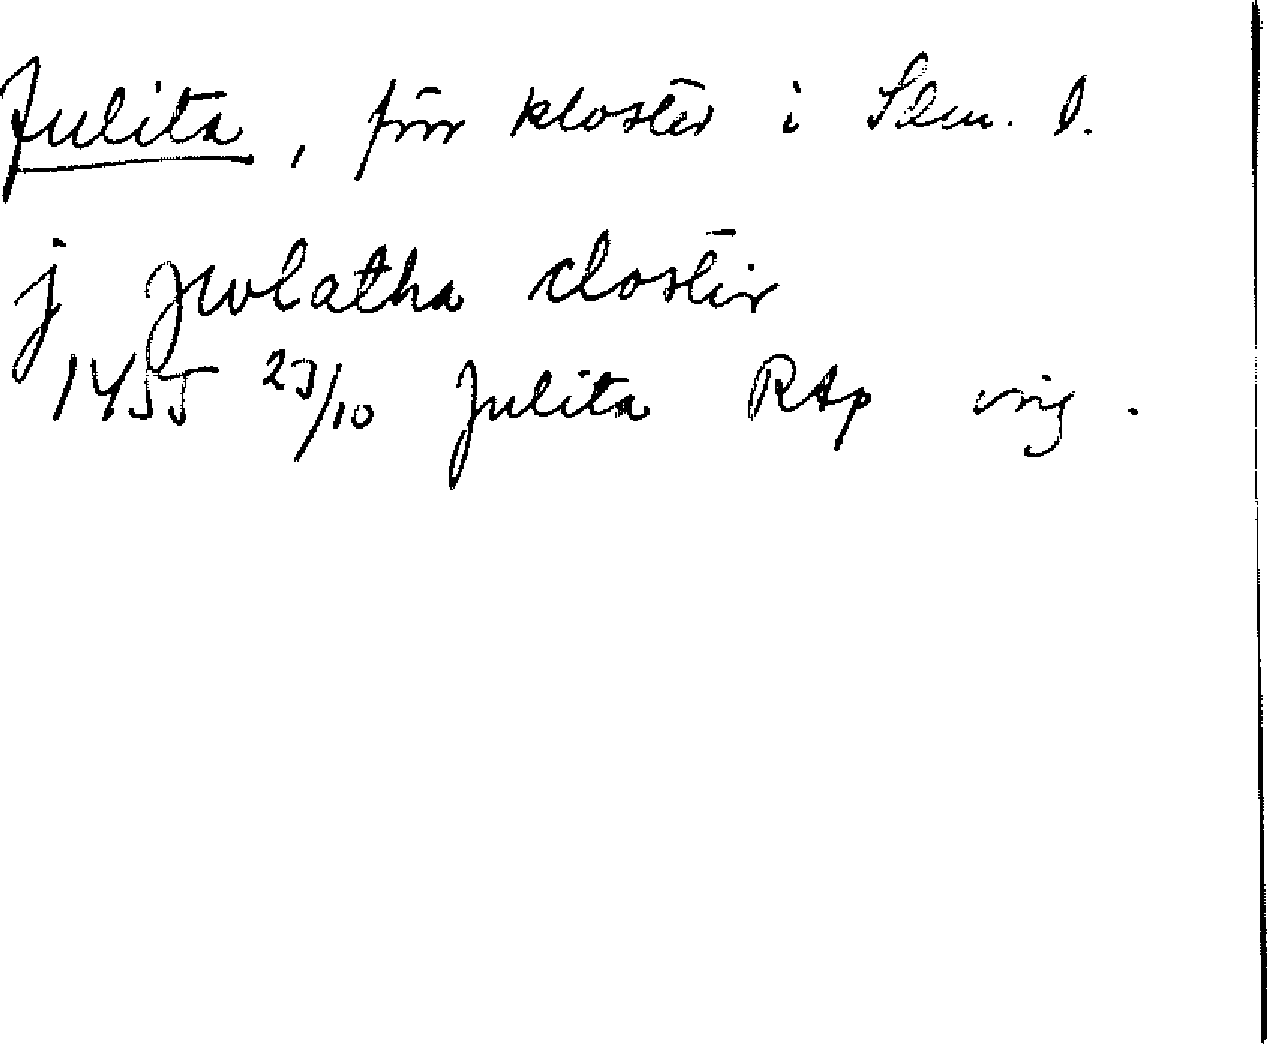 Julita, förr kloster i Sdm. l.
j jwlatha clostir
1455 23/10 Julita RAp orig.